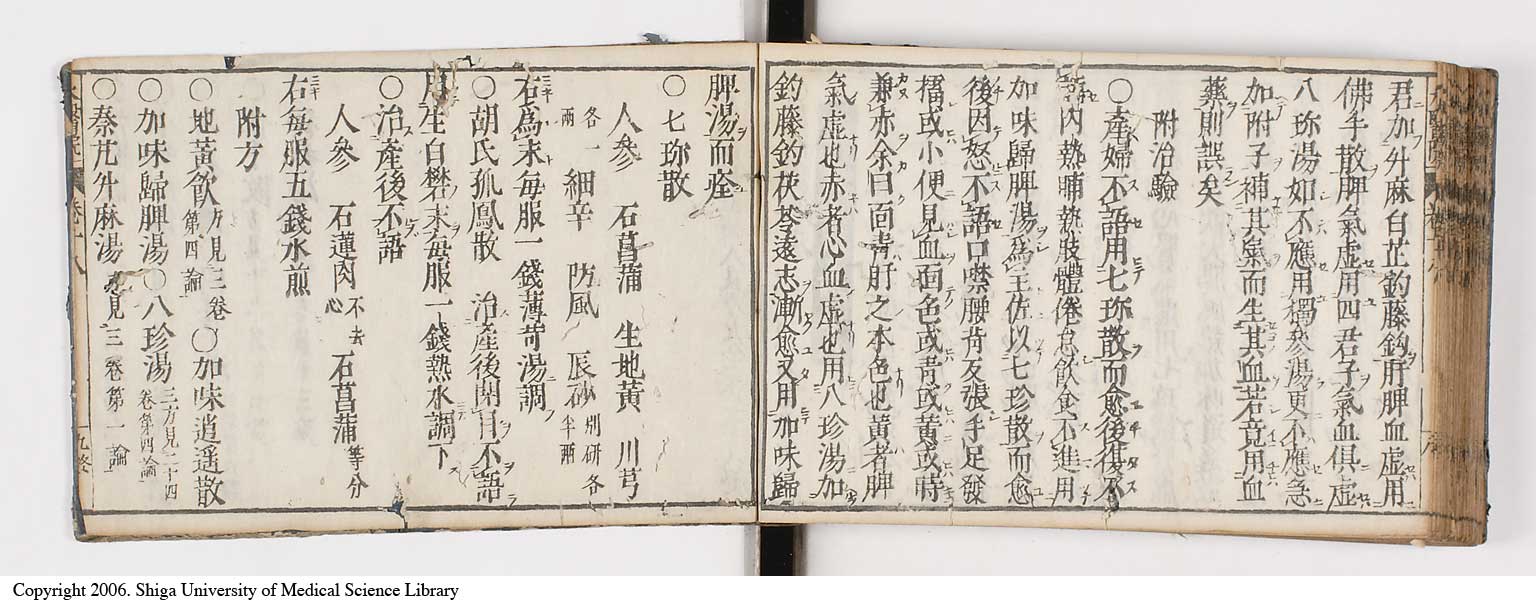 君加升麻白芷釣藤鈎肝脾血虛用
佛手散脾氣虛用四君子氣血俱虛
八珎湯如不應用獨參湯更不應急
加附子補其氣而生其血若竟用血
藥則誤矣
附治驗
○産婦不語用七珎散而愈後復不
語内熱晡熱肢體倦怠飲食不進用
加味歸脾湯爲主佐以七珍散而愈
後因怒不語口噤腰背反張手足發
搐或小便見血面色或青或黄或時
兼赤余曰面青肝之本色也黄者脾
氣虛也赤者心血虛也用八珍湯加
釣藤釣茯苓遠志漸愈又用加味歸
脾湯而痊
○七珎散
人參 石菖蒲 生地黄 川芎
各一兩 細辛 防風 辰砂 別研各半兩
右爲末毎服一錢薄苛湯調
○胡氏孤鳳散 治産後閉目不語
用生白礬末毎服一錢熱水調下
○治産後不語
人參 石蓮肉 不去心 石菖蒲 等分
右毎服五錢水煎
附方
○地黄飲 方見三卷第四論 ○加味逍遥散
○加味歸脾湯 ○八珍湯 三方見二十四卷第四論
○秦艽升麻湯 方見三卷第一論
Copyright 2006. Shiga University of Medical Science Library